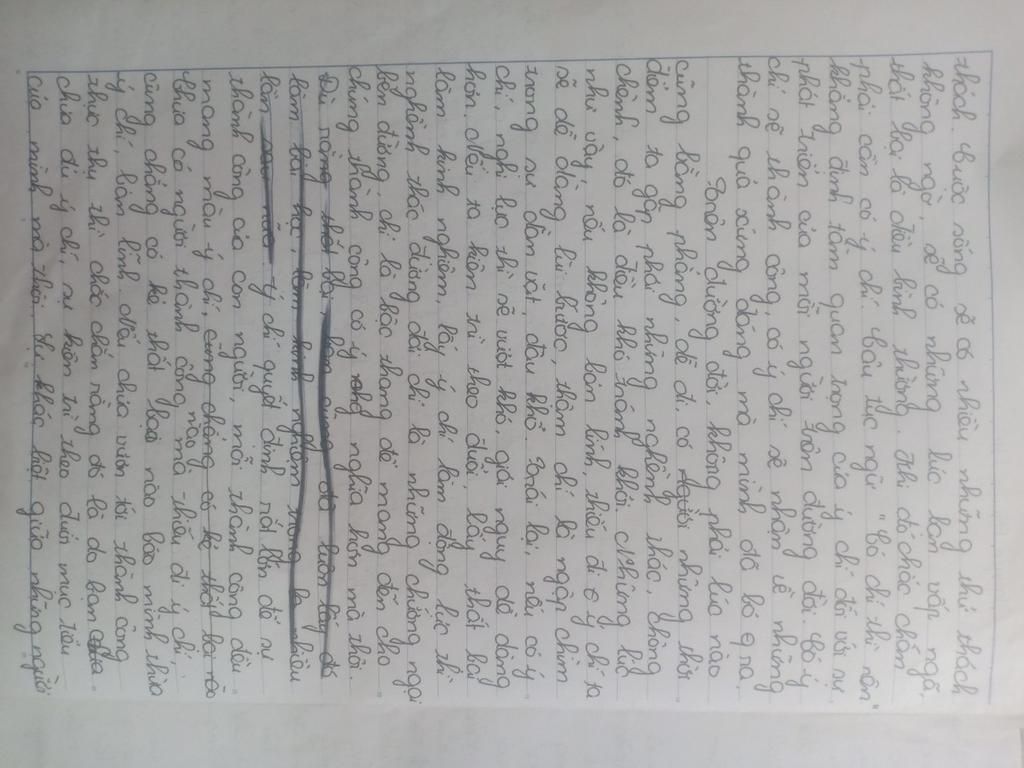 thách. Cuộc sống sẽ có nhiều những thử thách
không ngờ, sẽ có những lúc bạn vấp ngã,
thất bại là điều bình thường. Khi đó chắc chắn
phải cần có ý chí. Câu tục ngữ "Có chí thì nên"
khẳng định tầm quan trọng của ý chí đối với sự
phát triển của mỗi người trên đường đời. Có ý
chí sẽ thành công, có ý chí sẽ nhận về những
thành quả xứng đáng mà mình đã bỏ ra.
Trên đường đời không phải lúc nào
cũng bằng phẳng, dễ đi, có những thời
điểm ta gặp phải những nghềnh thác, chông
chênh, đó là điều khó tránh khỏi. Những lúc
như vậy nếu không bản lĩnh, thiếu đi ý chí ta
sẽ dễ dàng lùi bước, thậm chí là ngập chìm
trong sự dằn vặt, đau khổ. Trái lại, nếu có ý
chí, nghị lực thì sẽ vượt khó, gói nguy dễ dàng
hơn. Nếu ta kiên trì theo đuổi, lấy thất bại
làm kinh nghiệm, lấy ý chí làm động lực thì
nghềnh thác đường đời chỉ là những chướng ngại
bên đường, chỉ là bậc thang để mang đến cho
chúng thành công có ý nghĩa hơn mà thôi.
Dù rằng thất bại, bạn cũng đã luôn lấy đó
làm bài học, làm kinh nghiệm trong là nhiều
lần ý chí quyết định rất lớn đến sự
thành công của con người, mỗi thành công đều
mang màu ý chí, cũng chẳng có kẻ thất bại nào
Chưa có người thành công nào mà thiếu đi ý chí,
cũng chẳng có kẻ thất bại nào bảo mình thừa
ý chí, bản lĩnh. Nếu chưa vươn tới thành công
thực thụ thì chắc chắn rằng đó là do bạn
chưa đủ ý chí, sự kiên trì theo đuổi mục tiêu
của mình mà thôi. Sự khác biệt giữa những người